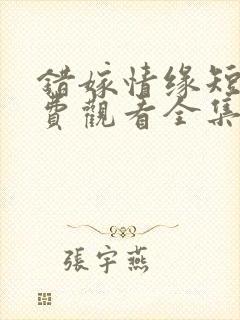 錯嫁情缘短
費觀看全集
張宇燕